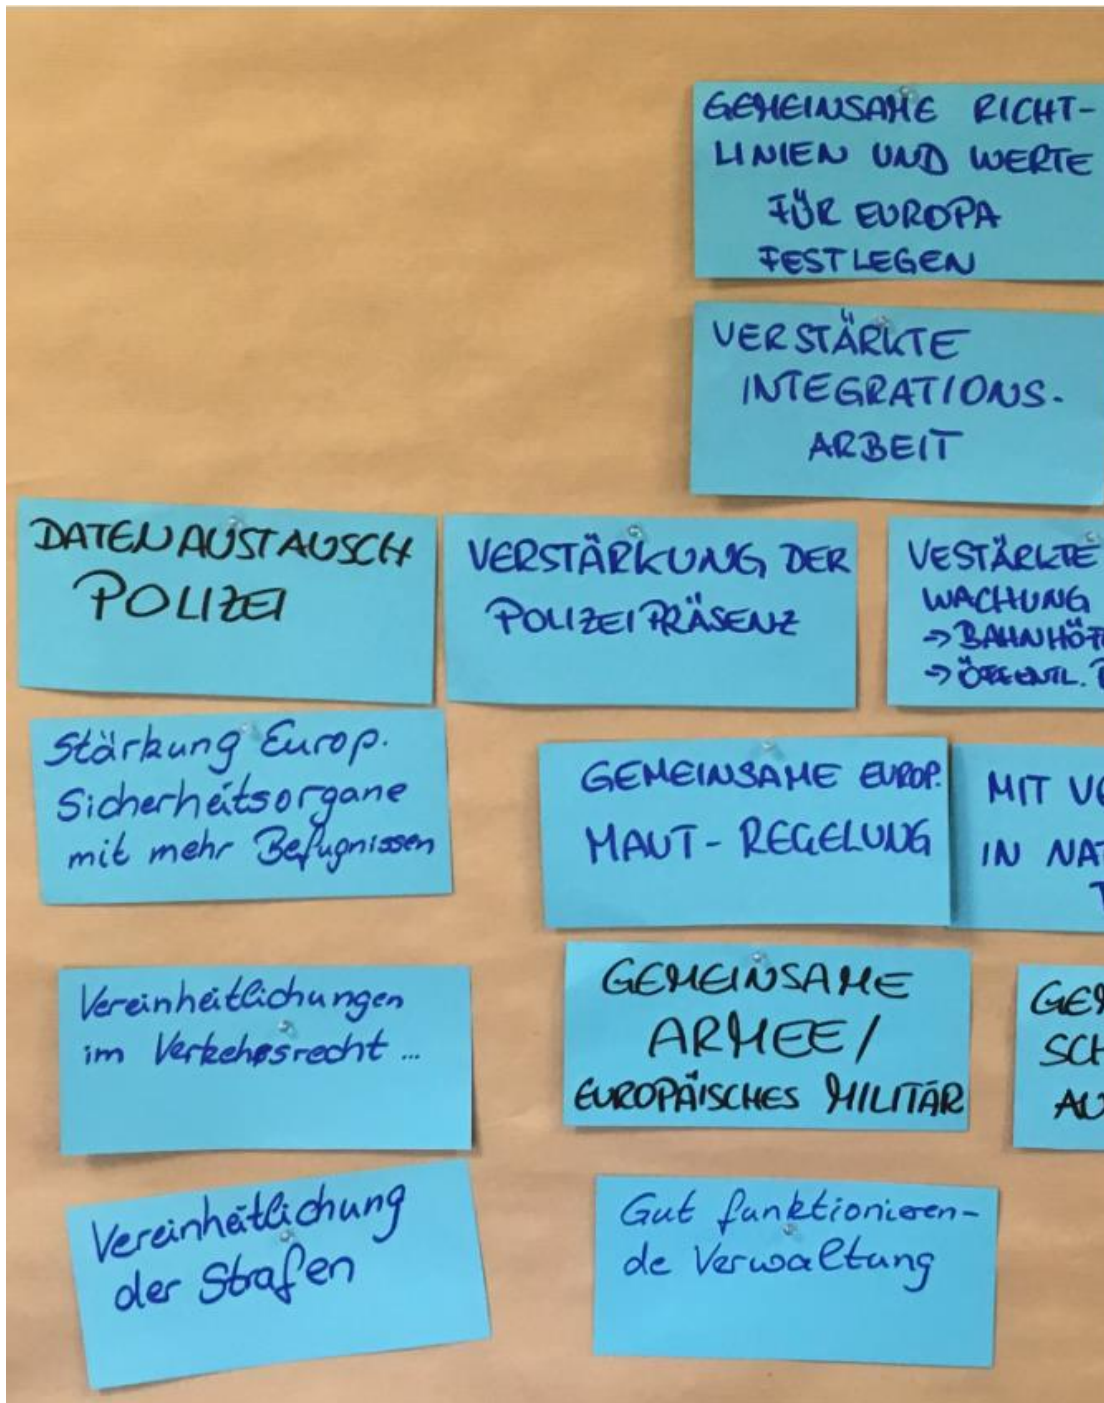 GEMEINSAME RICHT-
LINIEN UND WERTE
FÜR EUROPA
FESTLEGEN
VERSTÄRKTE
INTEGRATIONS-
ARBEIT
DATENAUSTAUSCH
POLIZEI
VERSTÄRKUNG DER
POLIZEIPRÄSENZ
VESTÄRKTE
WACHUNG
→ BAHNHÖF
→ ÖFFENTL.
Stärkung Europ.
Sicherheitsorgane
mit mehr Befugnissen
GEMEINSAME EUROP.
MAUT-REGELUNG
MIT VE
IN NAT
Vereinheitlichungen
im Verkehrsrecht ...
GEMEINSAME
ARMEE/
EUROPÄISCHES MILITÄR
GEM
SCH
AU
Vereinheitlichung
der Strafen
Gut funktionieren-
de Verwaltung